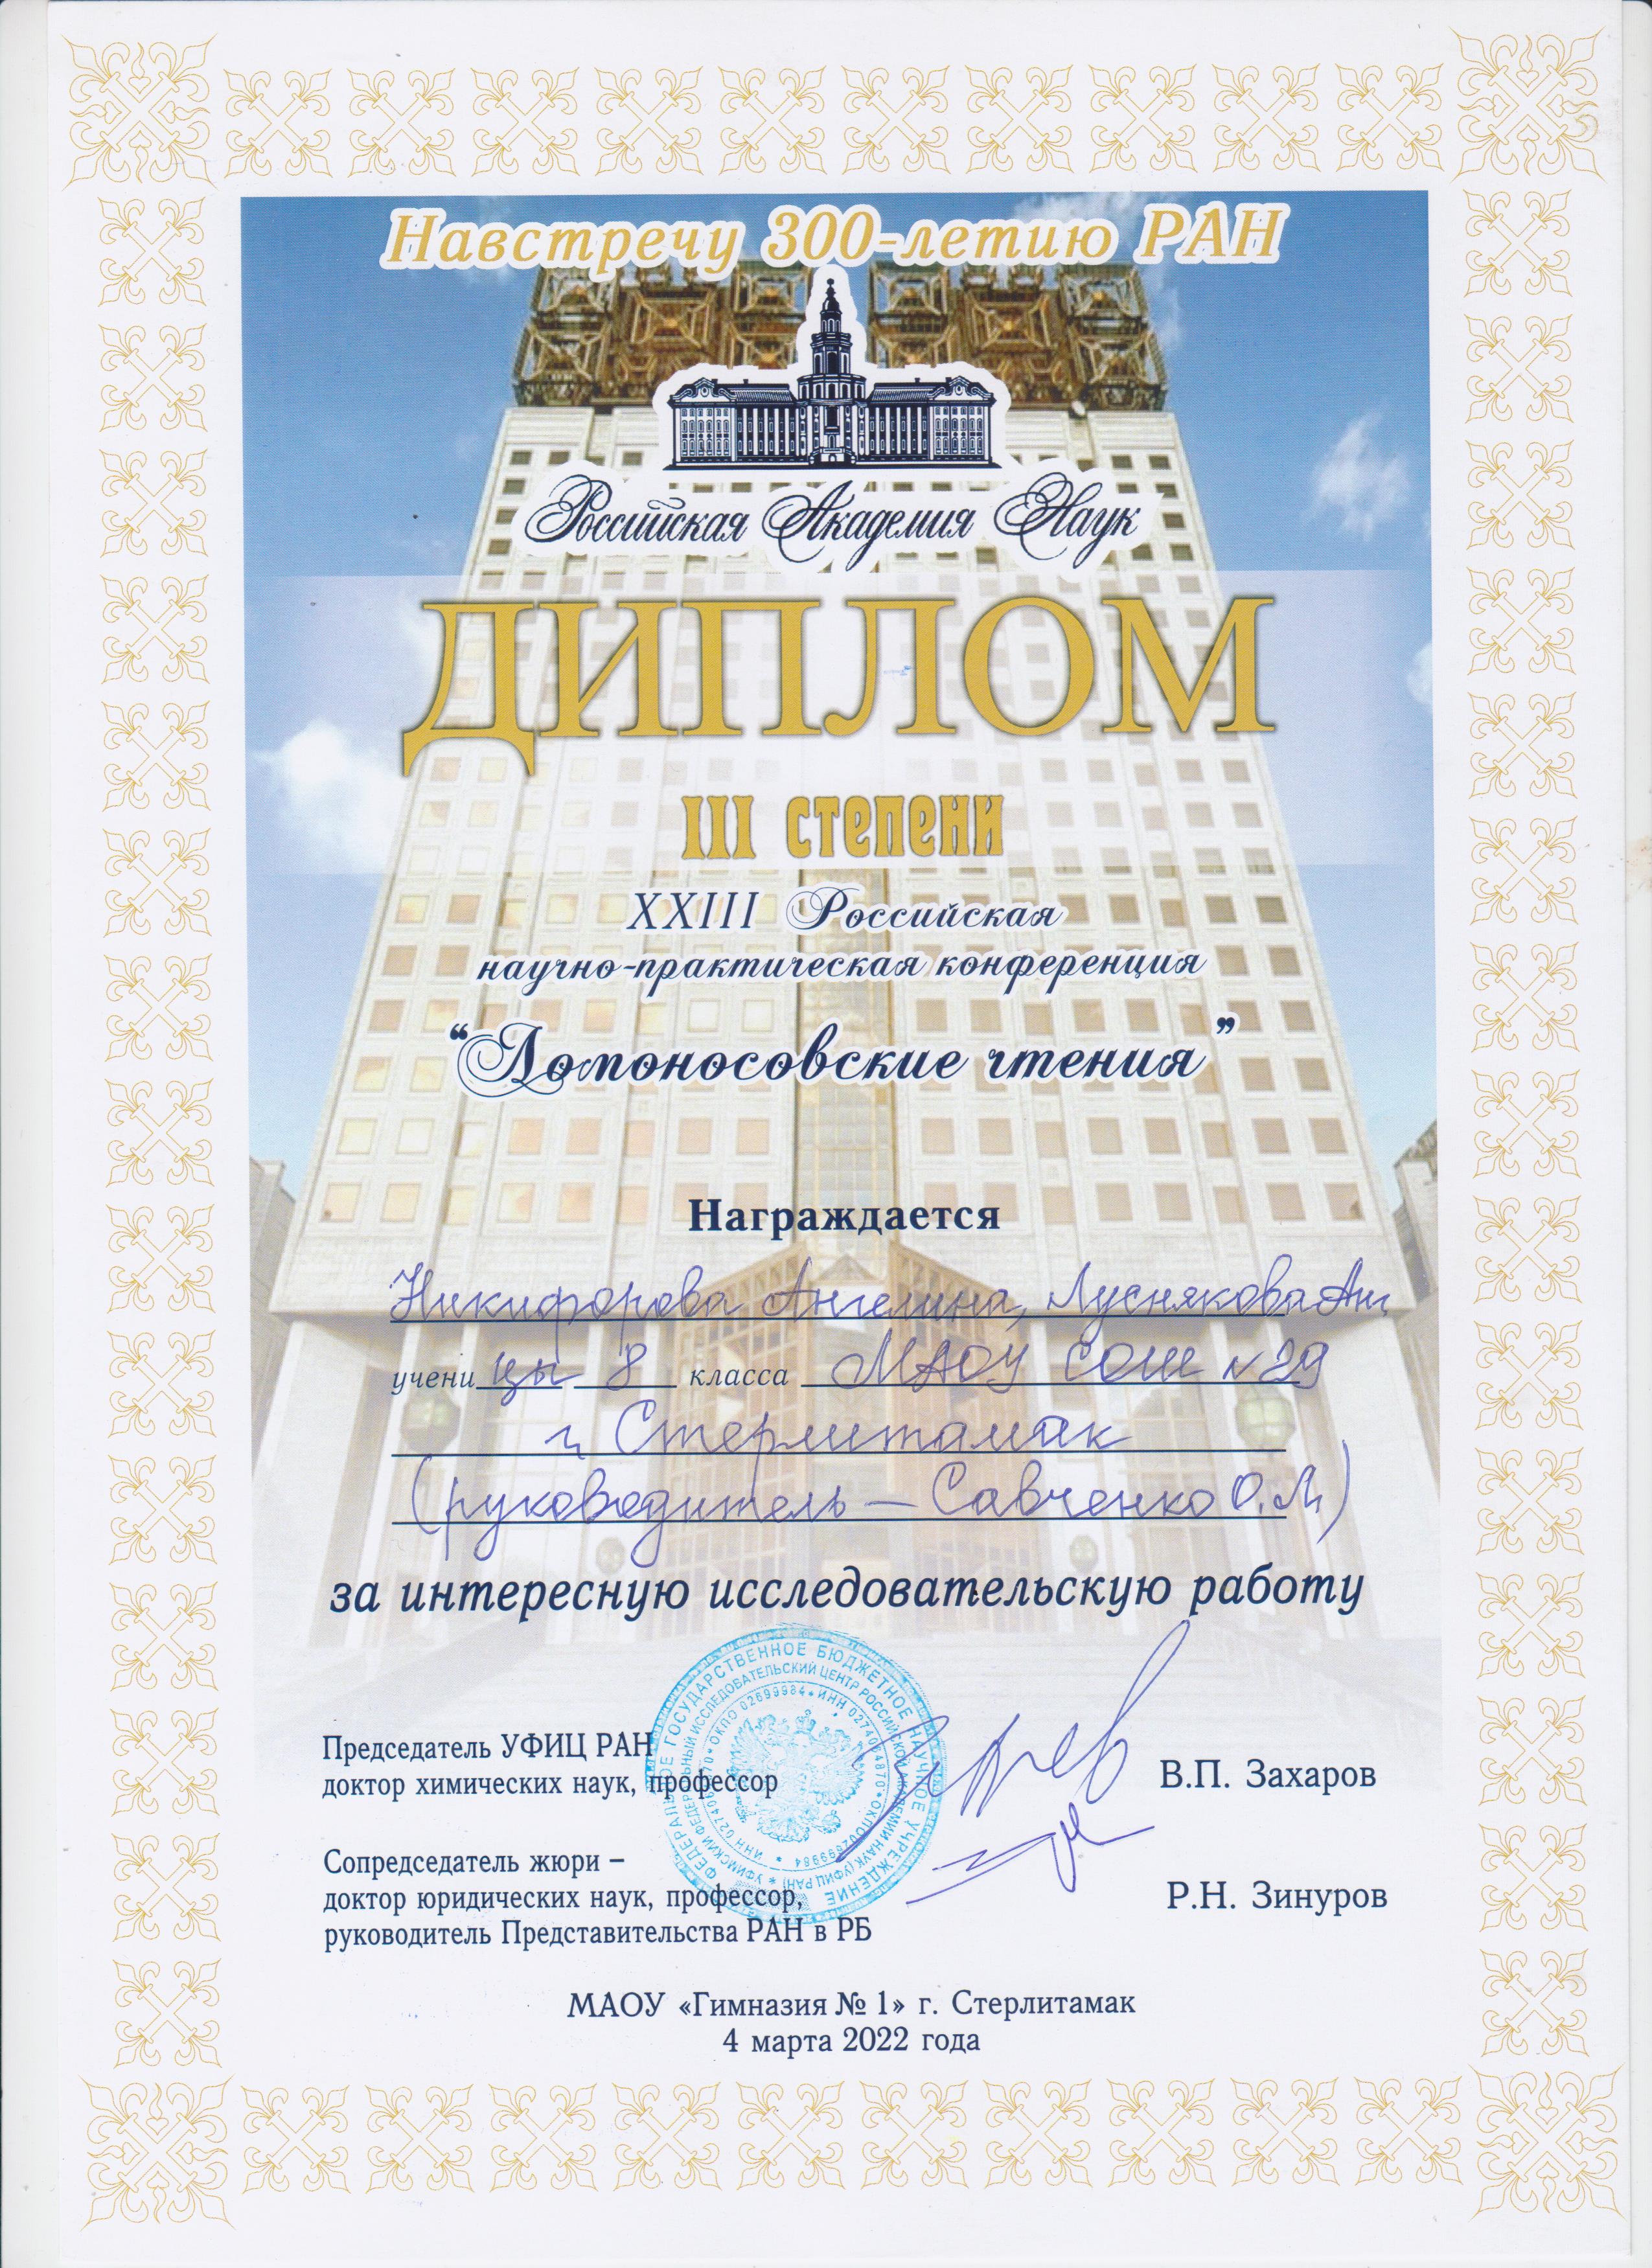 Навстречу 300-летию РАН
Российская Академия Наук
ДИПЛОМ
III степени
XXIII Российская
научно-практическая конференция
“Ломоносовские чтения”
Награждается
Никифорова Ангелина, Луснякова Ан.
ученицы 8 класса МАОУ СОШ №29
г. Стерлитамак
(руководитель – Савченко О.Л.)
за интересную исследовательскую работу
ФЕДЕРАЛЬНОЕ ГОСУДАРСТВЕННОЕ БЮДЖЕТНОЕ НАУЧНОЕ УЧРЕЖДЕНИЕ
УФИМСКИЙ ФЕДЕРАЛЬНЫЙ ИССЛЕДОВАТЕЛЬСКИЙ ЦЕНТР РОССИЙСКОЙ АКАДЕМИИ НАУК (УФИЦ РАН)
Председатель УФИЦ РАН
доктор химических наук, профессор
В.П. Захаров
Сопредседатель жюри –
доктор юридических наук, профессор,
руководитель Представительства РАН в РБ
Р.Н. Зинуров
МАОУ «Гимназия № 1» г. Стерлитамак
4 марта 2022 года